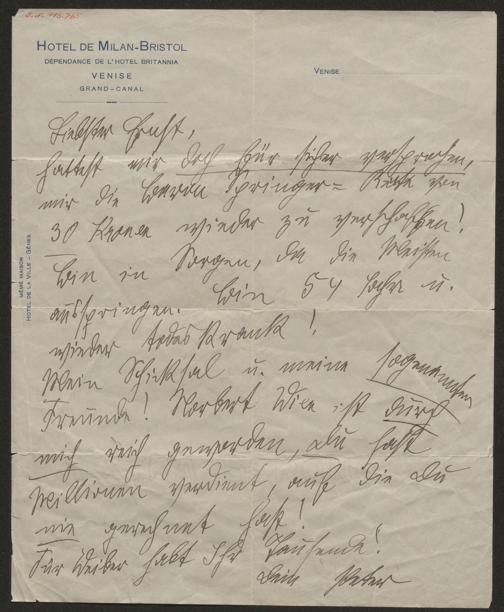 HOTEL DE MILAN-BRISTOL
DÉPENDANCE DE L'HOTEL BRITANNIA
VENISE
GRAND-CANAL
VENISE
MÊME MAISON
HOTEL DE LA VILLE - GÊNES
Liebster Ernst,
hattest mir doch für sicher versprochen,
mir die Baron Springer= Rente von
30 Kronen wieder zu verschaffen!
Bin in Sorgen, da die Meisten
ausspringen. Bin 54 Jahre u.
wieder todeskrank!
Mein Schicksal u. meine sogenannten
Freunde! Norbert ist durch
mich reich geworden, Du hast
Millionen verdient, auf die Du
nie gerechnet hast!
Für Weiber habt Ihr Tausende!
Dein Peter